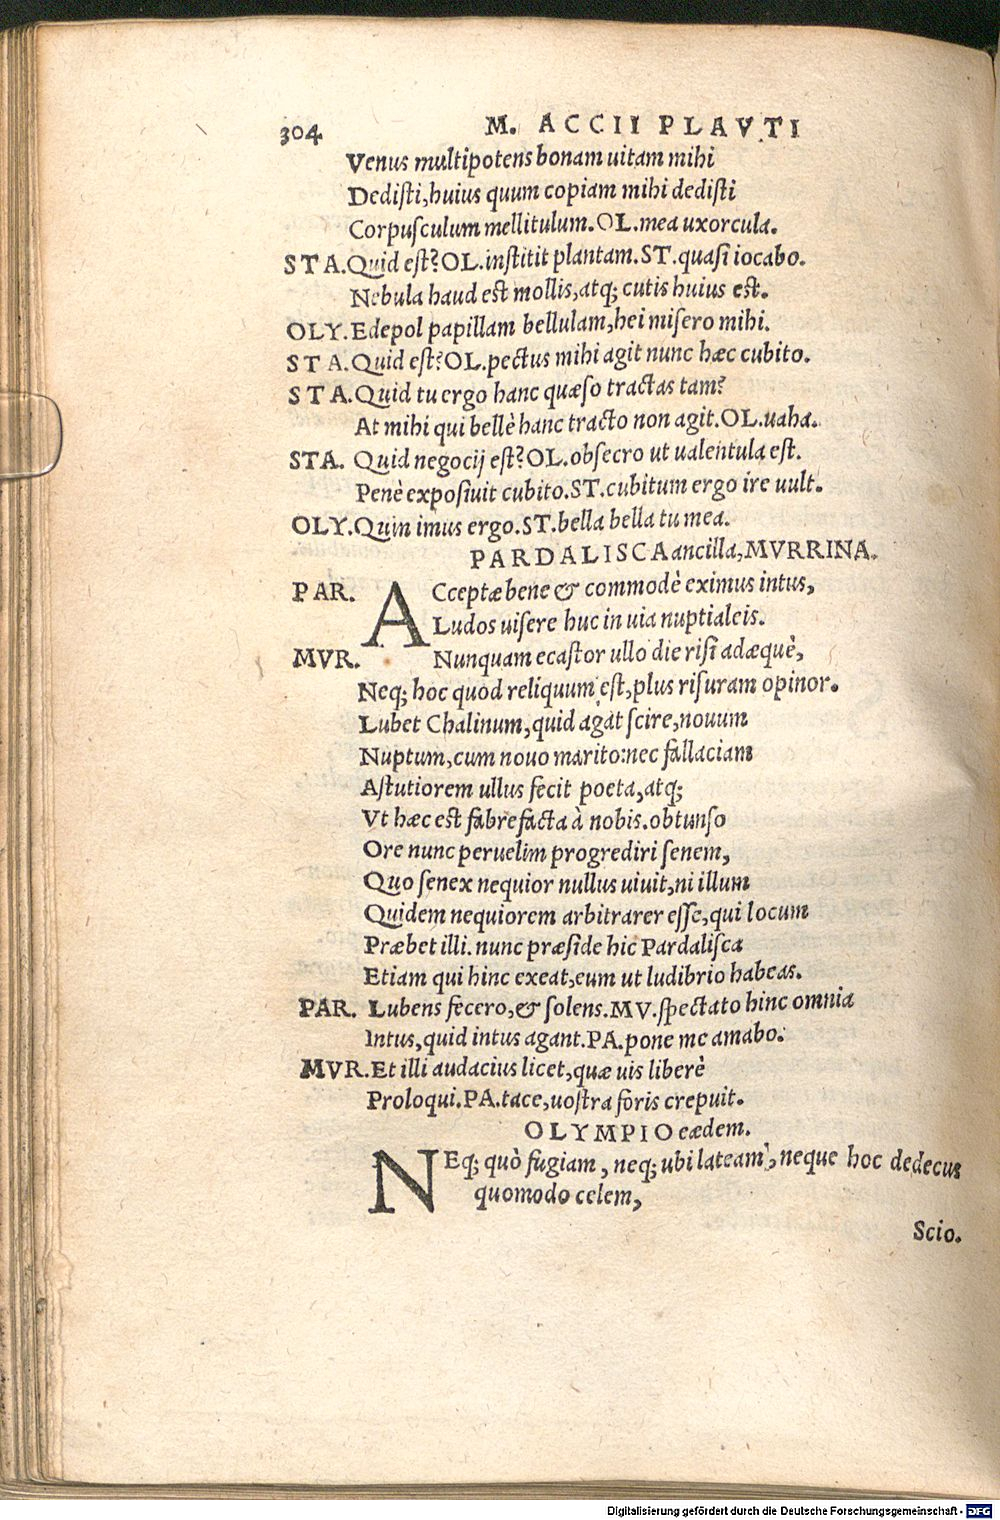 304 M. ACCII PLAVTI
Venus multipotens bonam uitam mihi
Dedisti, huius quum copiam mihi dedisti
Corpusculum mellitulum. OL. mea uxorcula.
STA. Quid est? OL. institit plantam. ST. quasi iocabo.
Nebula haud est mollis, atq; cutis huius est.
OLY. Edepol papillam bellulam, hei misero mihi.
STA. Quid est? OL. pectus mihi agit nunc hæc cubito.
STA. Quid tu ergo hanc quæso tractas tam?
At mihi qui bellè hanc tracto non agit. OL. uaha.
STA. Quid negocij est? OL. obsecro ut ualentula est.
Penè exposiuit cubito. ST. cubitum ergo ire uult.
OLY. Quin imus ergo. ST. bella bella tu mea.
PARDALISCA ancilla, MVRRINA.
PAR. ACceptæ bene & commodè eximus intus,
Ludos uisere huc in uia nuptialeis.
MVR. Nunquam ecastor ullo die risi adæquè,
Neq; hoc quod reliquum est, plus risuram opinor.
Lubet Chalinum, quid agat scire, nouum
Nuptum, cum nouo marito: nec fallaciam
Astutiorem ullus fecit poeta, atq;
Vt hæc est fabrefacta à nobis. obtunso
Ore nunc peruelim progrediri senem,
Quo senex nequior nullus uiuit, ni illum
Quidem nequiorem arbitrarer esse, qui locum
Præbet illi. nunc præside hic Pardalisca
Etiam qui hinc exeat, eum ut ludibrio habeas.
PAR. Lubens fecero, & solens. MV. spectato hinc omnia
Intus, quid intus agant. PA. pone me amabo.
MVR. Et illi audacius licet, quæ uis liberè
Proloqui. PA. tace, uostra foris crepuit.
OLYMPIO eædem.
NEq; quò fugiam, neq; ubi lateam, neque hoc dedecus
quomodo celem,
Scio.
Digitalisierung gefördert durch die Deutsche Forschungsgemeinschaft - DFG